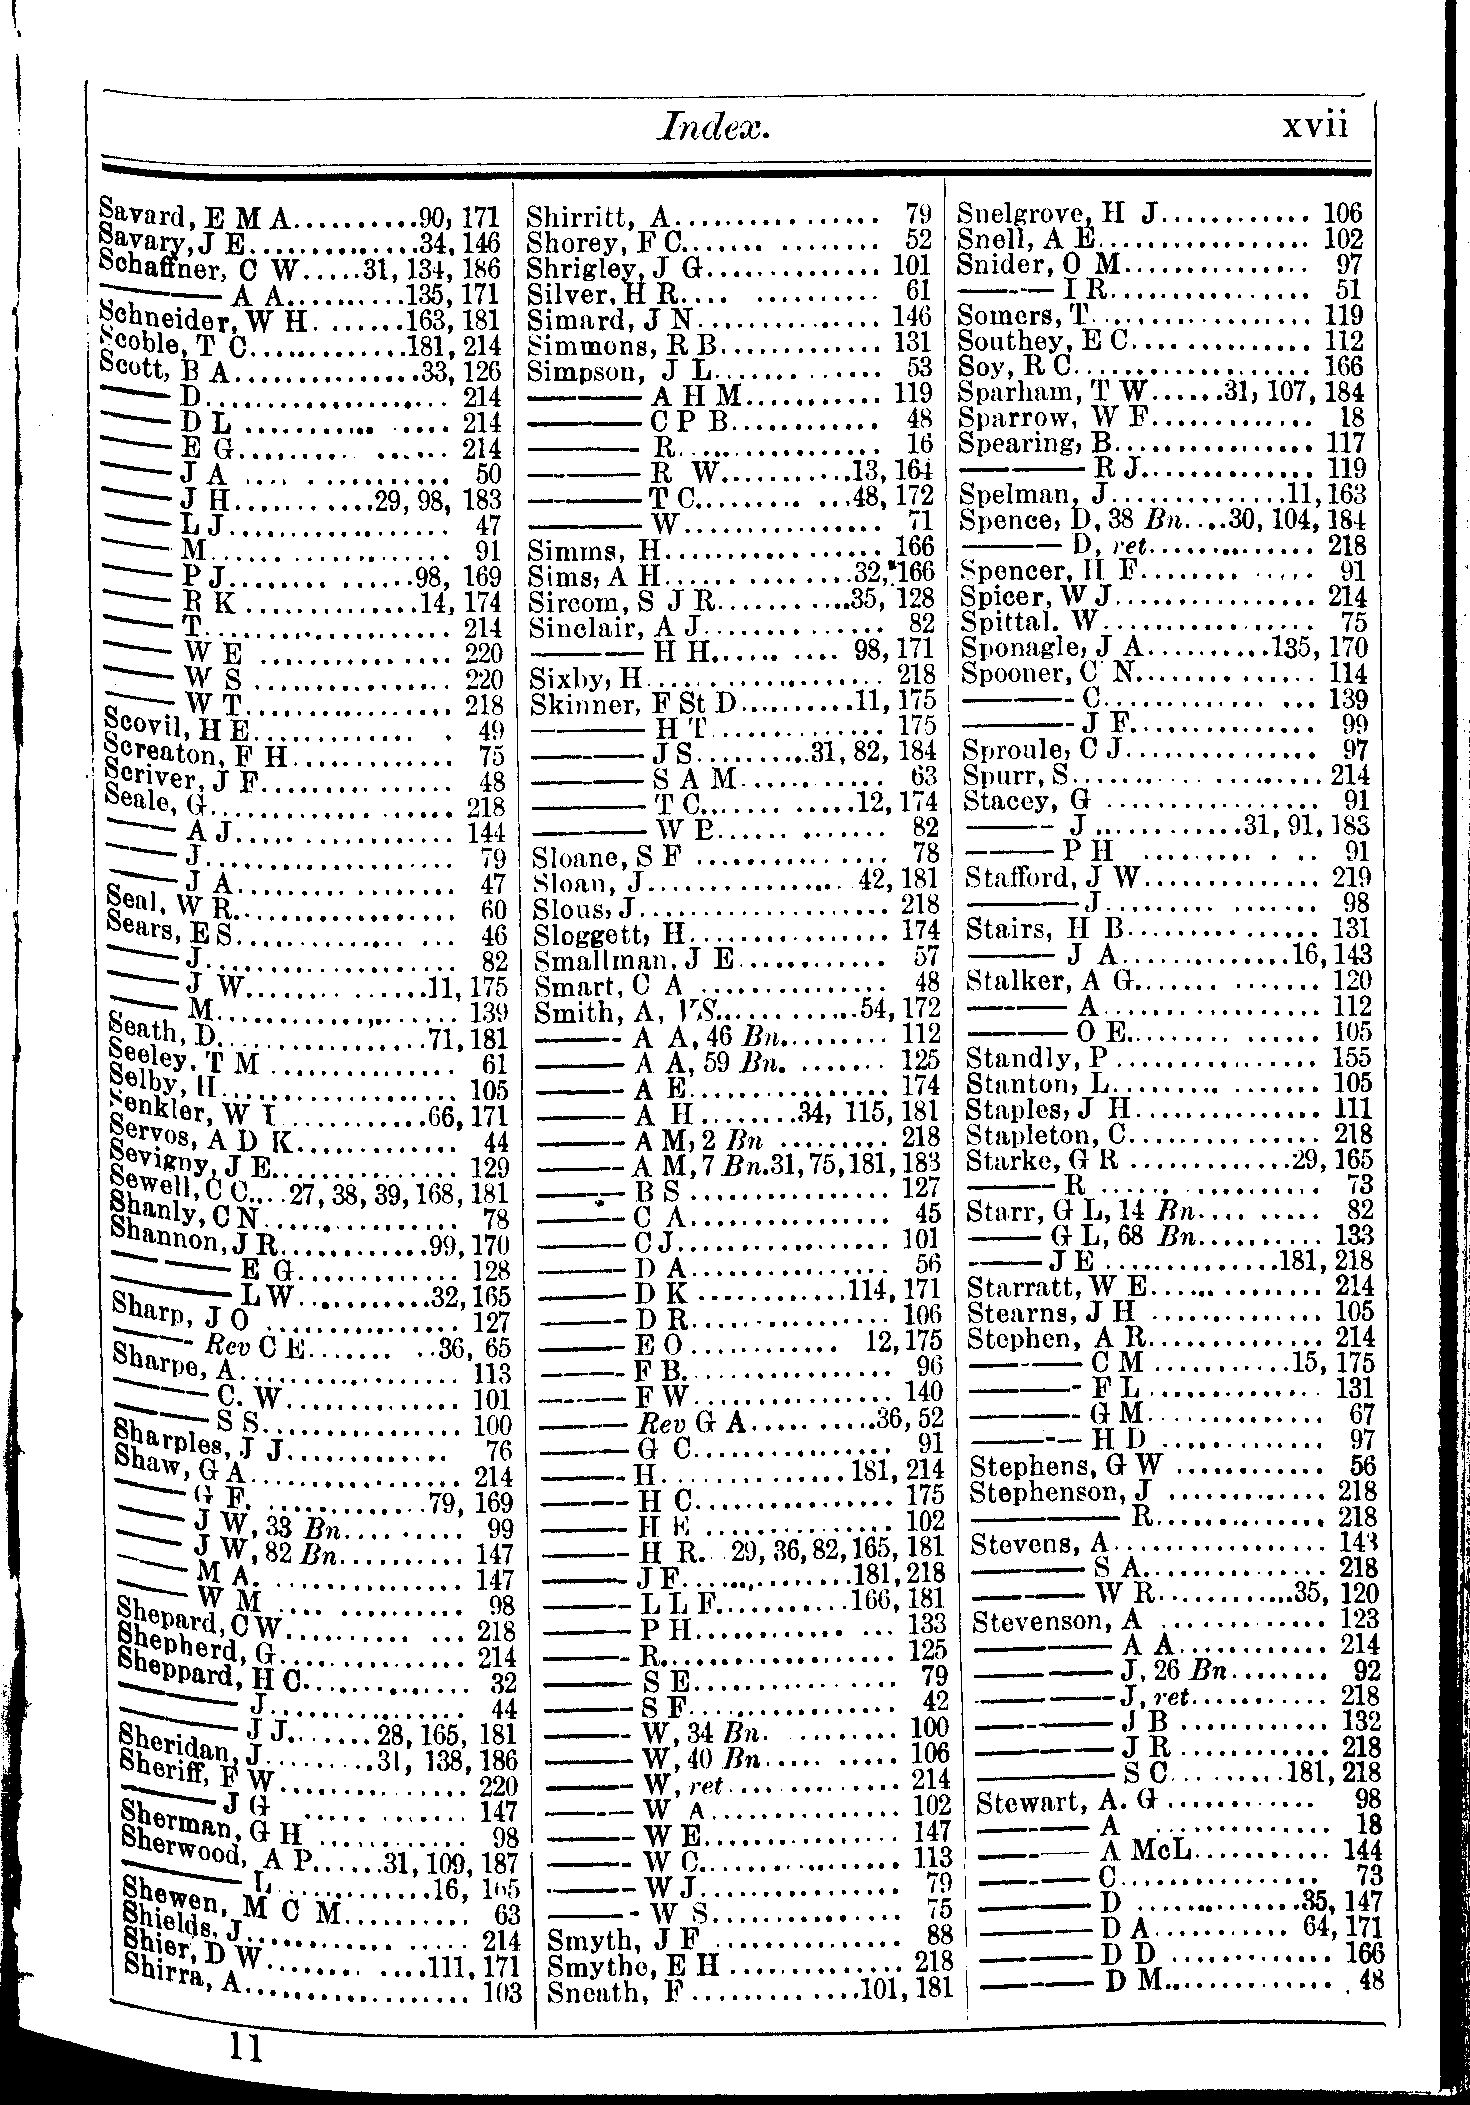 Index.
xvii
Savard, E M A..........90, 171
Savary, J E..............34, 146
Schaffner, C W.....31, 134, 186
——— A A..........135, 171
Schneider, W H........163, 181
Scoble, T C.............181, 214
Scott, B A...............33, 126
—— D.................... 214
—— D L ................ 214
—— E G................. 214
—— J A ................ 50
—— J H...........29, 98, 183
—— L J.................. 47
—— M.................... 91
—— P J..............98, 169
—— R K ..............14, 174
—— T.................... 214
—— W E ................ 220
—— W S ................ 220
—— W T................. 218
Scovil, H E............. . 49
Screaton, F H............. 75
Scriver, J F................ 48
Seale, G.................... 218
—— A J.................. 144
—— J.................... 79
—— J A.................. 47
Seal, W R.................. 60
Sears, E S................. 46
—— J.................... 82
—— J W..............11, 175
—— M.................... 139
Seath, D.................71, 181
Seeley, T M ............... 61
Selby, H................... 105
Senkler, W I ...........66, 171
Servos, A D K............. 44
Sevigny, J E............... 129
Sewell, C C....27, 38, 39, 168, 181
Shanly, C N................ 78
Shannon, J R............99, 170
——— E G............. 128
——— L W...........32, 165
Sharp, J O ................ 127
—— Rev C E..........36, 65
Sharpe, A.................. 113
——— C. W.............. 101
——— S S................ 100
Sharples, J J............. 76
Shaw, G A................. 214
—— G F. .............79, 169
—— J W, 33 Bn.......... 99
—— J W, 82 Bn.......... 147
—— M A. ............... 147
—— W M ............... 98
Shepard, C W.............. 218
Shepherd, G............... 214
Sheppard, H C............. 32
——— J................ 44
——— J J.......28, 165, 181
Sheridan, J.........31, 138, 186
Sheriff, F W............... 220
——— J G .............. 147
Sherman, G H ............ 98
Sherwood, A P......31, 109, 187
——— L .............16, 165
Shewen, M C M.......... 63
Shields, J.................. 214
Shier, D W............111, 171
Shirra, A.................. 103
Shirritt, A................ 79
Shorey, F C............... 52
Shrigley, J G.............. 101
Silver, H R.... .......... 61
Simard, J N............... 146
Simmons, R B............. 131
Simpson, J L............. 53
——— A H M........... 119
——— C P B............ 48
——— R................ 16
——— R W...........13, 164
——— T C............48, 172
——— W................ 71
Simms, H................. 166
Sims, A H..............32, 166
Sircom, S J R..........35, 128
Sinclair, A J.............. 82
——— H H.......... 98, 171
Sixby, H................... 218
Skinner, F St D..........11, 175
——— H T.............. 175
——— J S.........31, 82, 184
——— S A M........... 63
——— T C............12, 174
——— W B............. 82
Sloane, S F ............... 78
Sloan, J............... 42, 181
Slous, J................... 218
Sloggett, H................ 174
Smallman, J E............ 57
Smart, C A ............... 48
Smith, A, VS...........54, 172
——— A A, 46 Bn......... 112
——— A A, 59 Bn. ....... 125
——— A E................ 174
——— A H........34, 115, 181
——— A M, 2 Bn ......... 218
——— A M, 7 Bn.31, 75, 181, 183
——— B S ................ 127
——— C A................ 45
——— C J................. 101
——— D A................ 56
——— D K ............114, 171
——— D R................ 106
——— E O............ 12, 175
——— F B................ 96
——— F W................ 140
——— Rev G A..........36, 52
——— G C................ 91
——— H............... 181, 214
——— H C................ 175
——— H E ............... 102
——— H R. 29, 36, 82, 165, 181
——— J F..............181, 218
——— L L F...........166, 181
——— P H............... 133
——— R................... 125
——— S E................ 79
——— S F................. 42
——— W, 34 Bn. ........ 100
——— W, 40 Bn.......... 106
——— W, ret.............. 214
——— W A............... 102
——— W E................ 147
——— W C................ 113
——— W J................ 79
——— W S............... 75
Smyth, J F ............... 88
Smythe, E H .............. 218
Sneath, F .............101, 181
Snelgrove, H J............ 106
Snell, A E................. 102
Snider, O M............... 97
——— I R................ 51
Somers, T................. 119
Southey, E C.............. 112
Soy, R C................... 166
Sparham, T W......31, 107, 184
Sparrow, W F............. 18
Spearing, B................ 117
——— R J.............. 119
Spelman, J..............11, 163
Spence, D, 38 Bn....30, 104, 184
——— D, ret.............. 218
Spencer, H F........ ..... 91
Spicer, W J................ 214
Spittal. W................. 75
Sponagle, J A..........135, 170
Spooner, C N.............. 114
——— C............. ... 139
——— J F............... 99
Sproule, C J............... 97
Spurr, S................... 214
Stacey, G ................. 91
——— J ............31, 91, 183
——— P H ......... . .. 91
Stafford, J W.............. 219
——— J................. 98
Stairs, H B................ 131
——— J A..............16, 143
Stalker, A G............... 120
——— A................. 112
——— O E............... 105
Standly, P ................ 155
Stanton, L................ 105
Staples, J H............... 111
Stapleton, C............... 218
Starke, G R .............29, 165
——— R .................. 73
Starr, G L, 14 Bn.... ..... 82
——— G L, 68 Bn.......... 133
——— J E ..............181, 218
Starratt, W E............. 214
Stearns, J H .............. 105
Stephen, A R.............. 214
——— C M ...........15, 175
——— F L .............. 131
——— G M.............. 67
——— H D ............. 97
Stephens, G W ............ 56
Stephenson, J ............. 218
——— R.............. 218
Stevens, A................. 143
——— S A............... 218
——— W R...........35, 120
Stevenson, A ............. 123
——— A A............ 214
——— J, 26 Bn........ 92
——— J, ret........... 218
——— J B ............ 132
——— J R ............ 218
——— S C.........181, 218
Stewart, A. G ............ 98
——— A .............. 18
——— A McL........... 144
——— C................ 73
——— D ..............35, 147
——— D A............ 64, 171
——— D D ............. 166
——— D M.............. 48
11